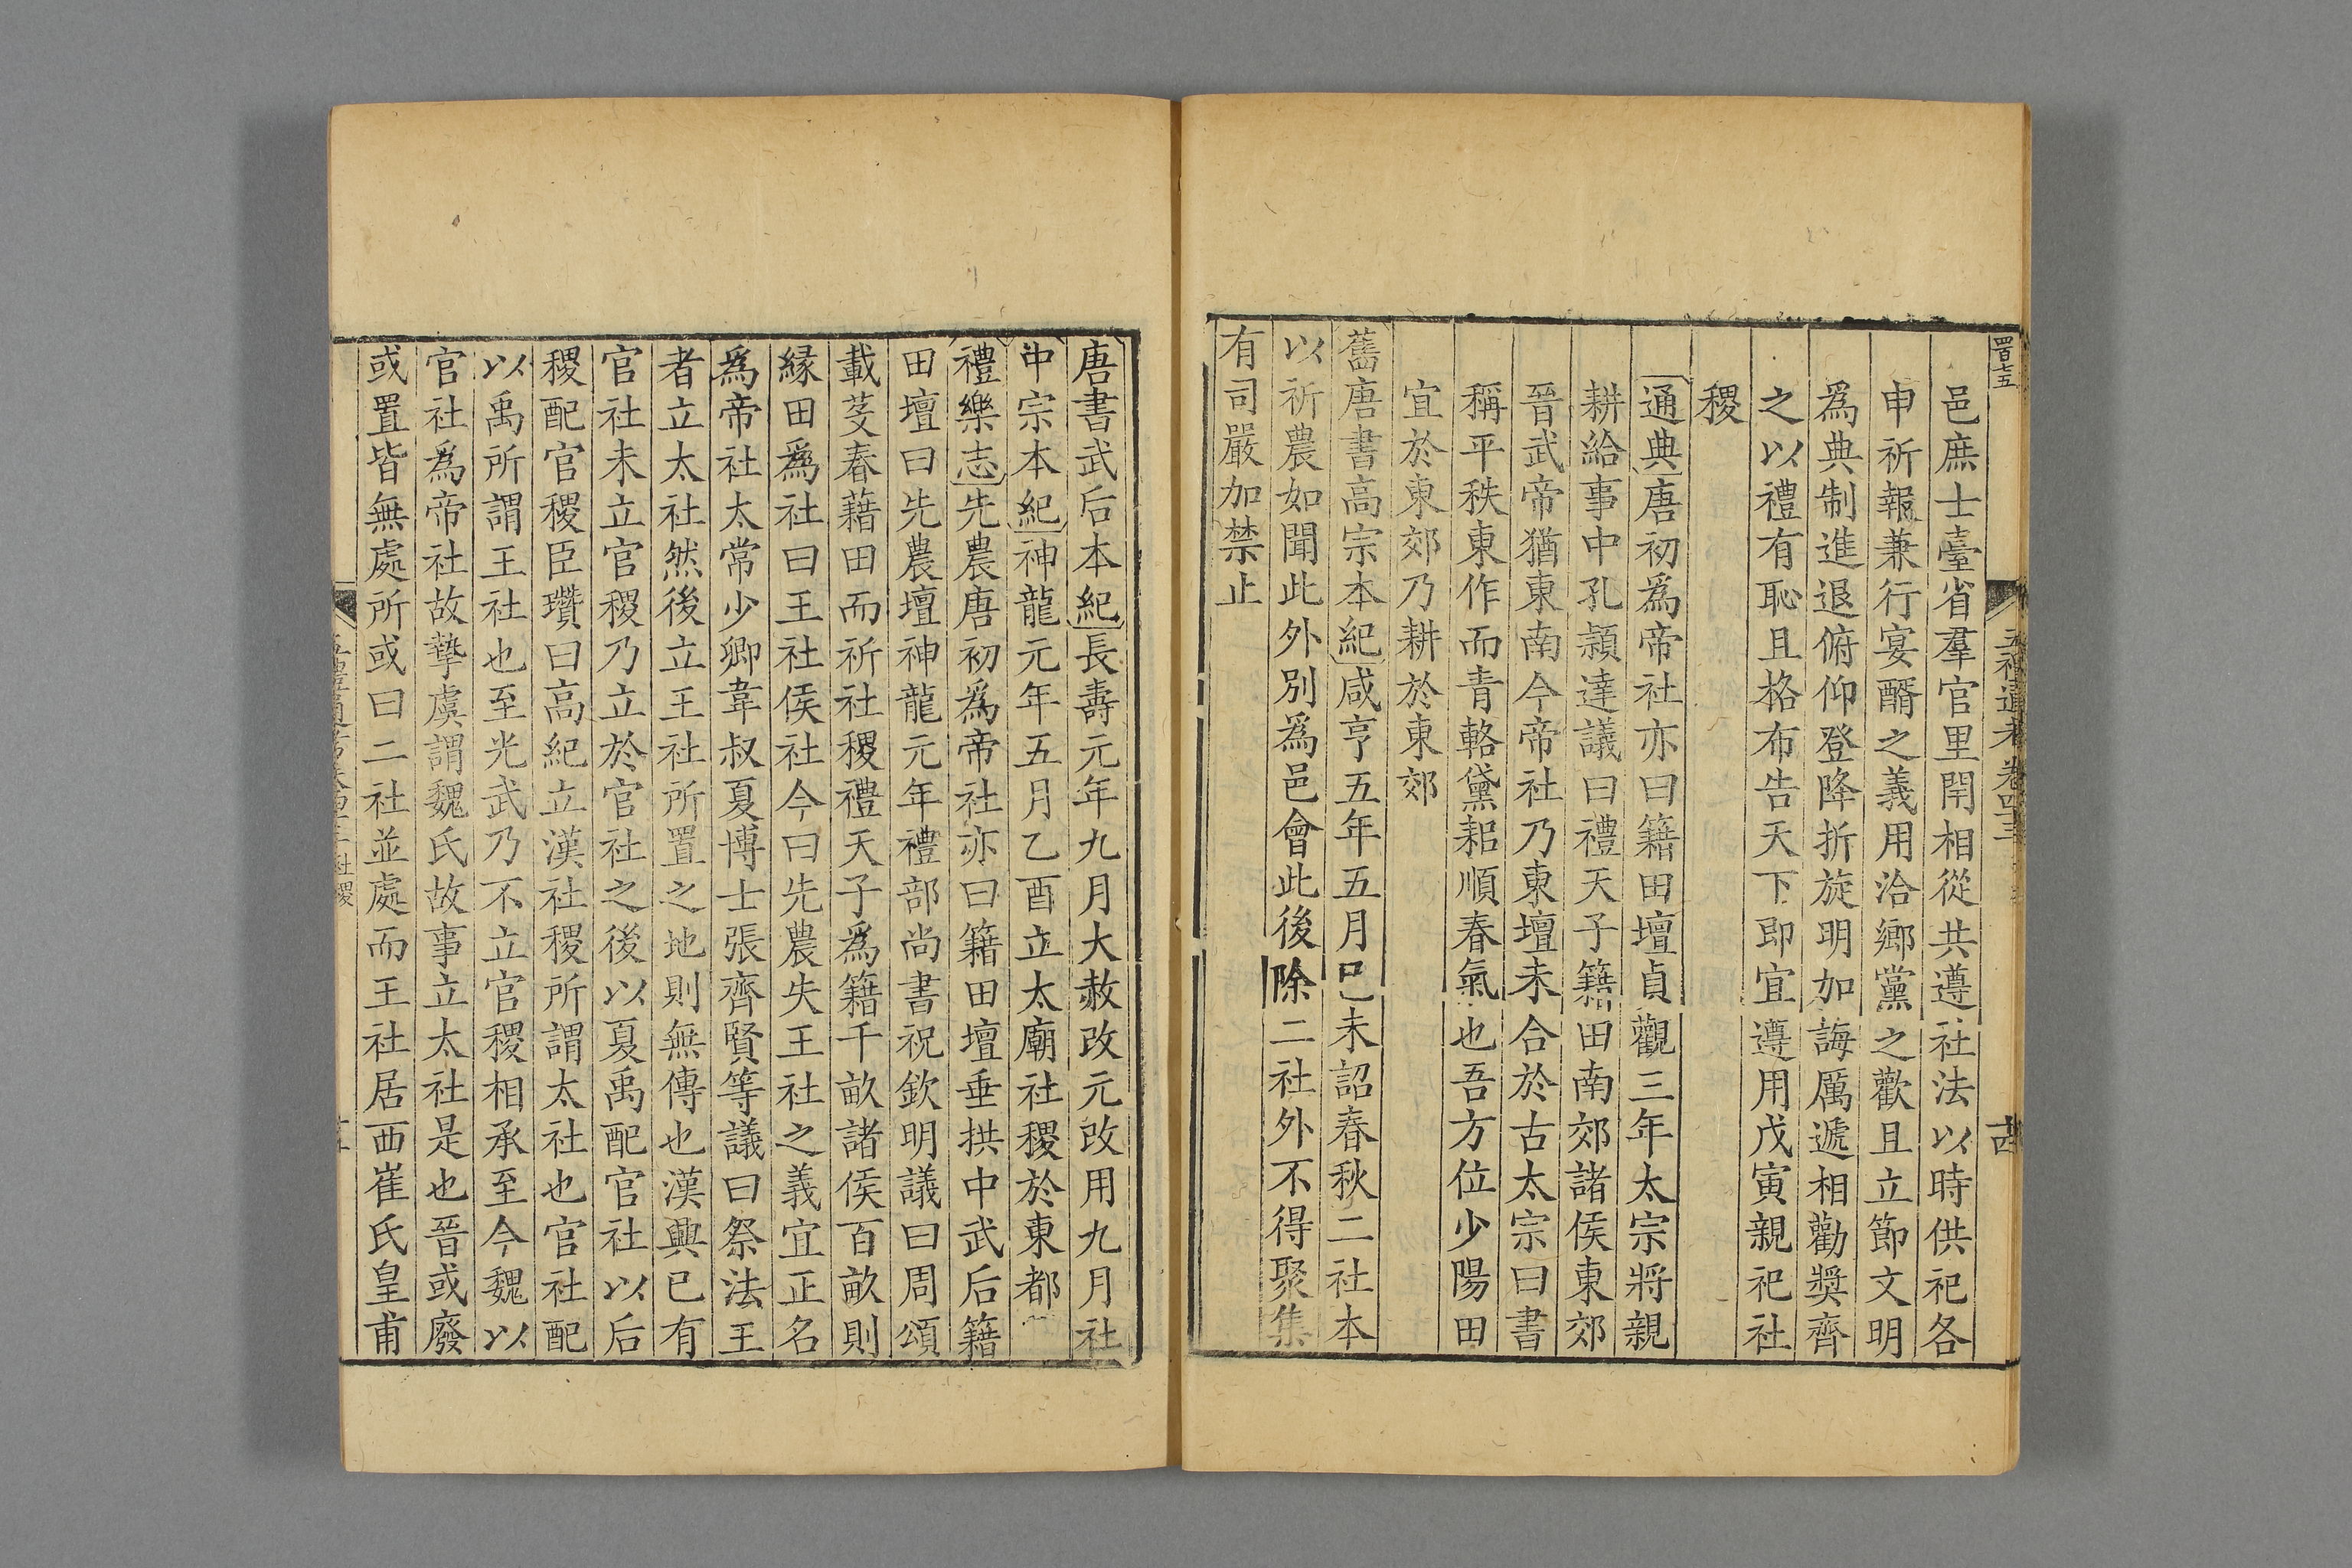 四百七五
五禮通考卷四十三
十四
邑庶士臺省羣官里閈相從共遵社法以時供祀各
申祈報兼行宴醑之義用洽鄉黨之歡且立節文明
爲典制進退俯仰登降折旋明加誨厲遞相勸奬齊
之以禮有恥且格布告天下即宜遵用戊寅親祀社
稷
通典唐初爲帝社亦曰籍田壇貞觀三年太宗將親
耕給事中孔穎達議曰禮天子籍田南郊諸侯東郊
晉武帝猶東南今帝社乃東壇未合於古太宗曰書
稱平秩東作而青輅黛耜順春氣也吾方位少陽田
宜於東郊乃耕於東郊
舊唐書高宗本紀咸亨五年五月己未詔春秋二社本
以祈農如聞此外別爲邑會此後除二社外不得聚集
有司嚴加禁止
唐書武后本紀長壽元年九月大赦改元改用九月社
中宗本紀神龍元年五月乙酉立太廟社稷於東都
禮樂志先農唐初爲帝社亦曰籍田壇垂拱中武后籍
田壇曰先農壇神龍元年禮部尚書祝欽明議曰周頌
載芟春藉田而祈社稷禮天子爲籍千畝諸侯百畝則
緣田爲社曰王社侯社今曰先農失王社之義宜正名
爲帝社太常少卿韋叔夏博士張齊賢等議曰祭法王
者立太社然後立王社所置之地則無傳也漢興已有
官社未立官稷乃立於官社之後以夏禹配官社以后
稷配官稷臣瓚曰高紀立漢社稷所謂太社也官社配
以禹所謂王社也至光武乃不立官稷相承至今魏以
官社爲帝社故摯虞謂魏氏故事立太社是也晉或廢
或置皆無處所或曰二社並處而王社居西崔氏皇甫
社稷